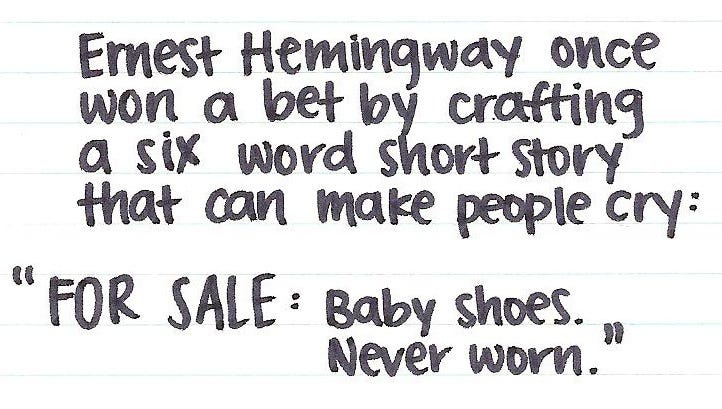 Ernest Hemingway once
won a bet by crafting
a six word short story
that can make people cry:
"FOR SALE: Baby shoes.
Never worn."